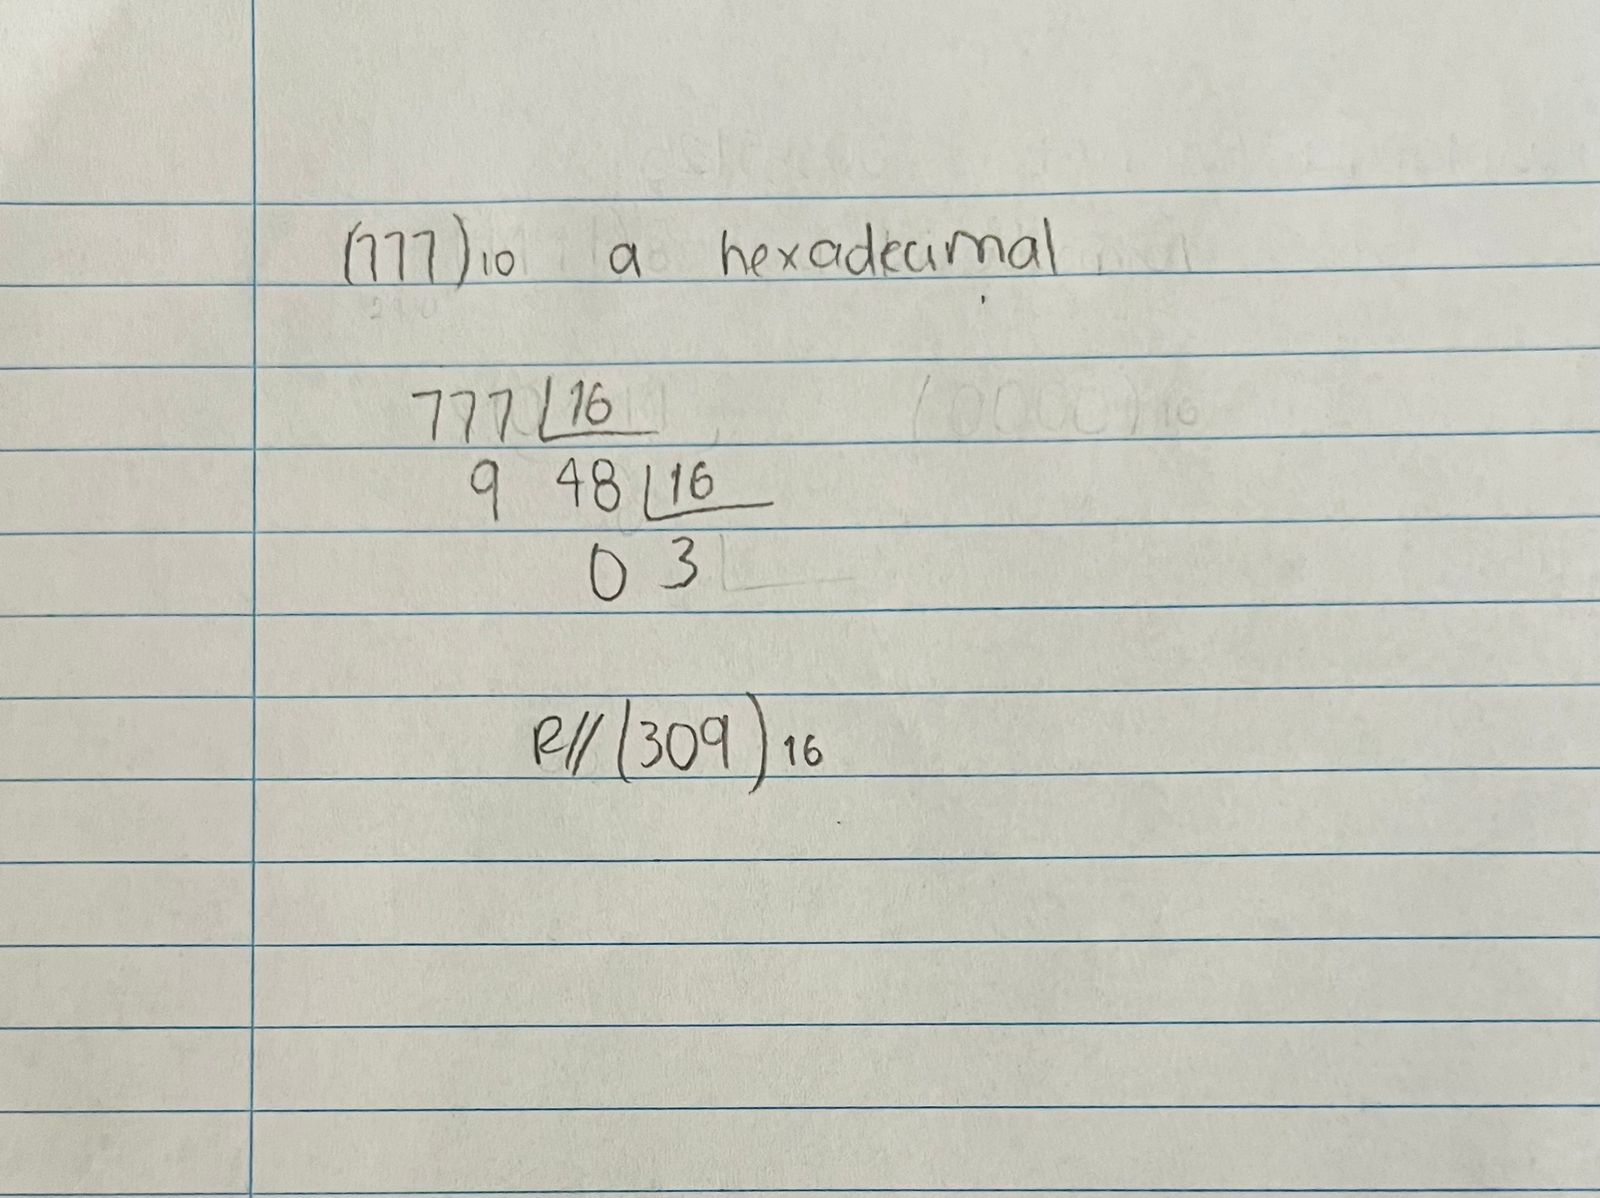 (777)10 a hexadecimal
777 | 16
9 48 | 16
0 3
R// (309)16